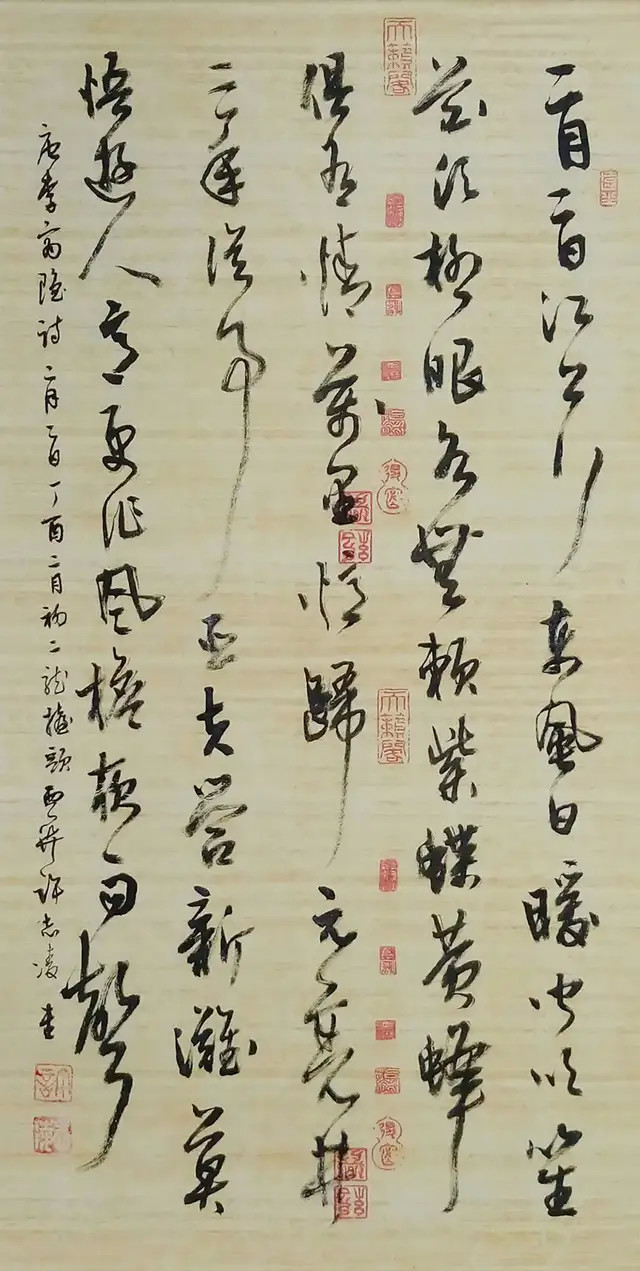 二月二日江上行東風日暖聞吹笙
花須柳眼各無賴紫蝶黄蜂
俱有情萬里憶歸元亮井
三年從事亞夫營新灘莫
悟遊人意更作風檐夜雨聲
唐李商隐詩二月二日丁酉二月初二龍擡頭西許志凌書
天籟閣
天籟閣